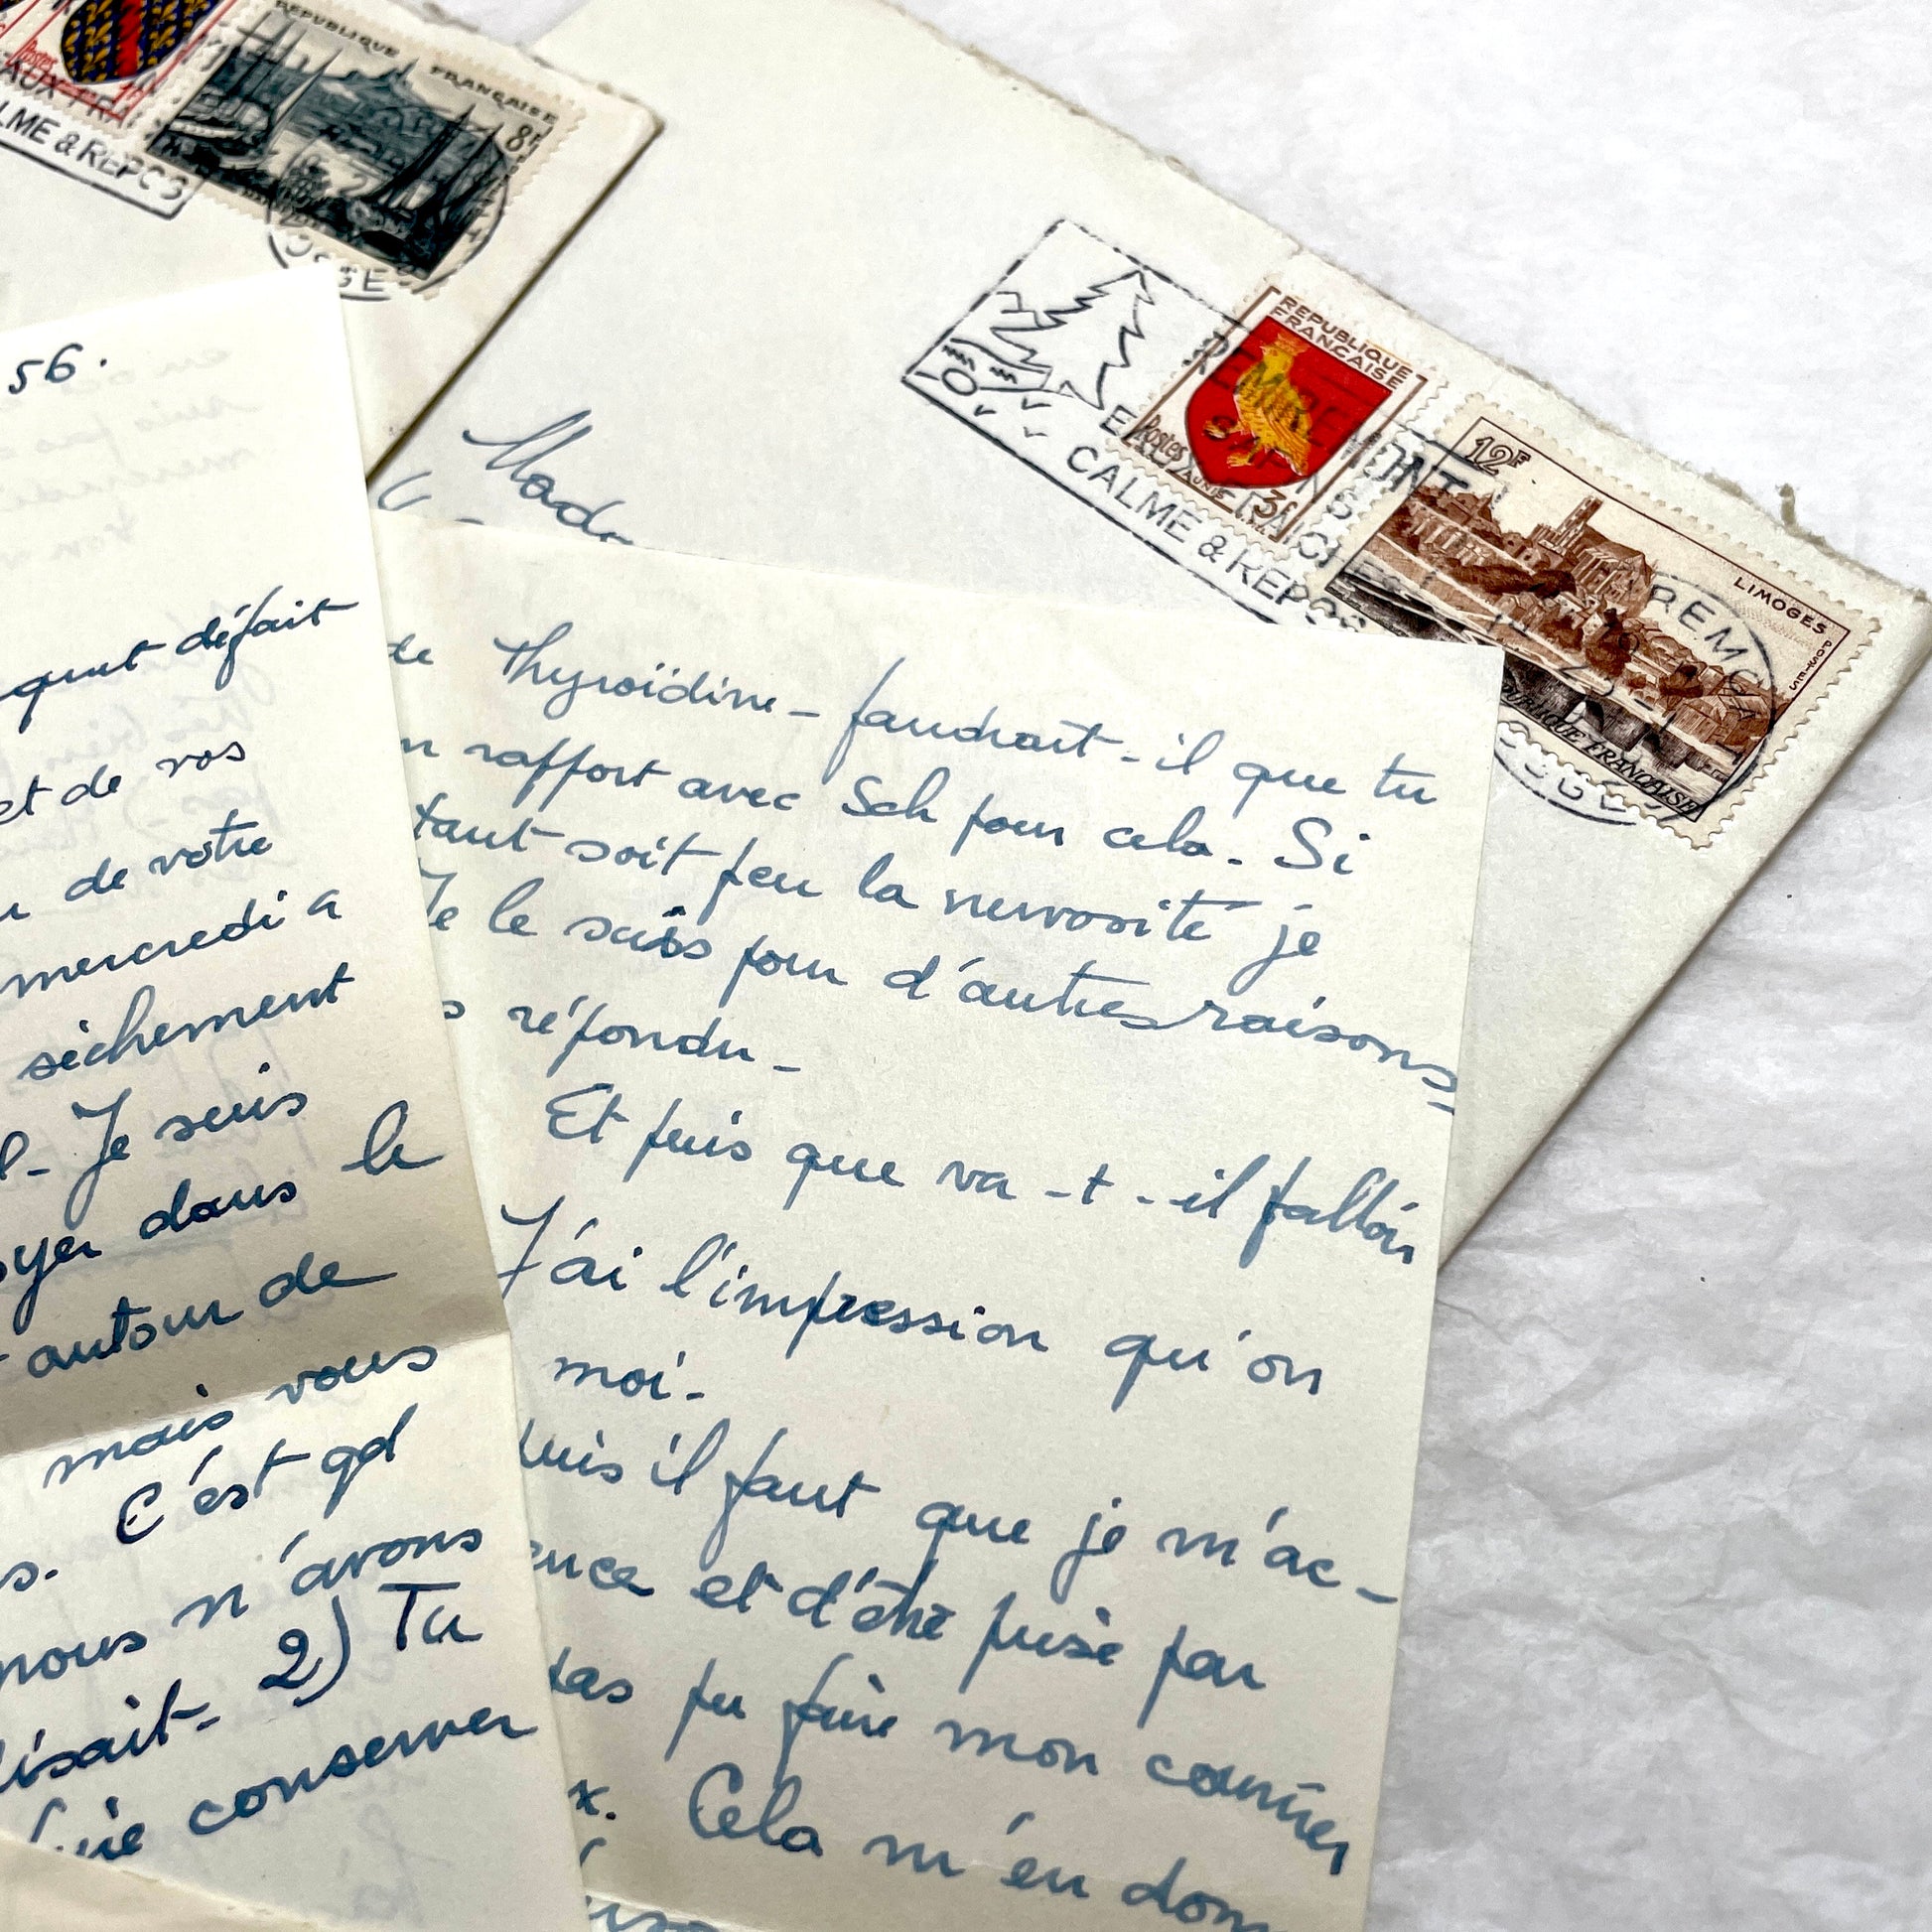 REPUBLIQUE FRANÇAISE
8F
Postes
1F
CALME & REPOS
REPUBLIQUE
FRANÇAISE
Postes
AUNIS
3F
EAUX
FRAICHES
CALME & REPOS
REMIREMONT
12F
LIMOGES
POSTES
REPUBLIQUE FRANÇAISE
VOSGES
56.
défait
et de vos
de votre
mercredi a
sèchement
Je suis
dans le
autour de
mais vous
C'est gd
nous n'avons
2) Tu
conserver
de Thyroïdine - faudrait-il que tu
rapport avec Sch pour cela. Si
tant soit peu la nervosité je
Je le sais pour d'autres raisons -
répondu -
Et puis que va-t-il falloir
J'ai l'impression qu'on
moi -
puis il faut que je m'ac-
et d'être pesé par
pas pu faire mon courrier
x. Cela m'en don